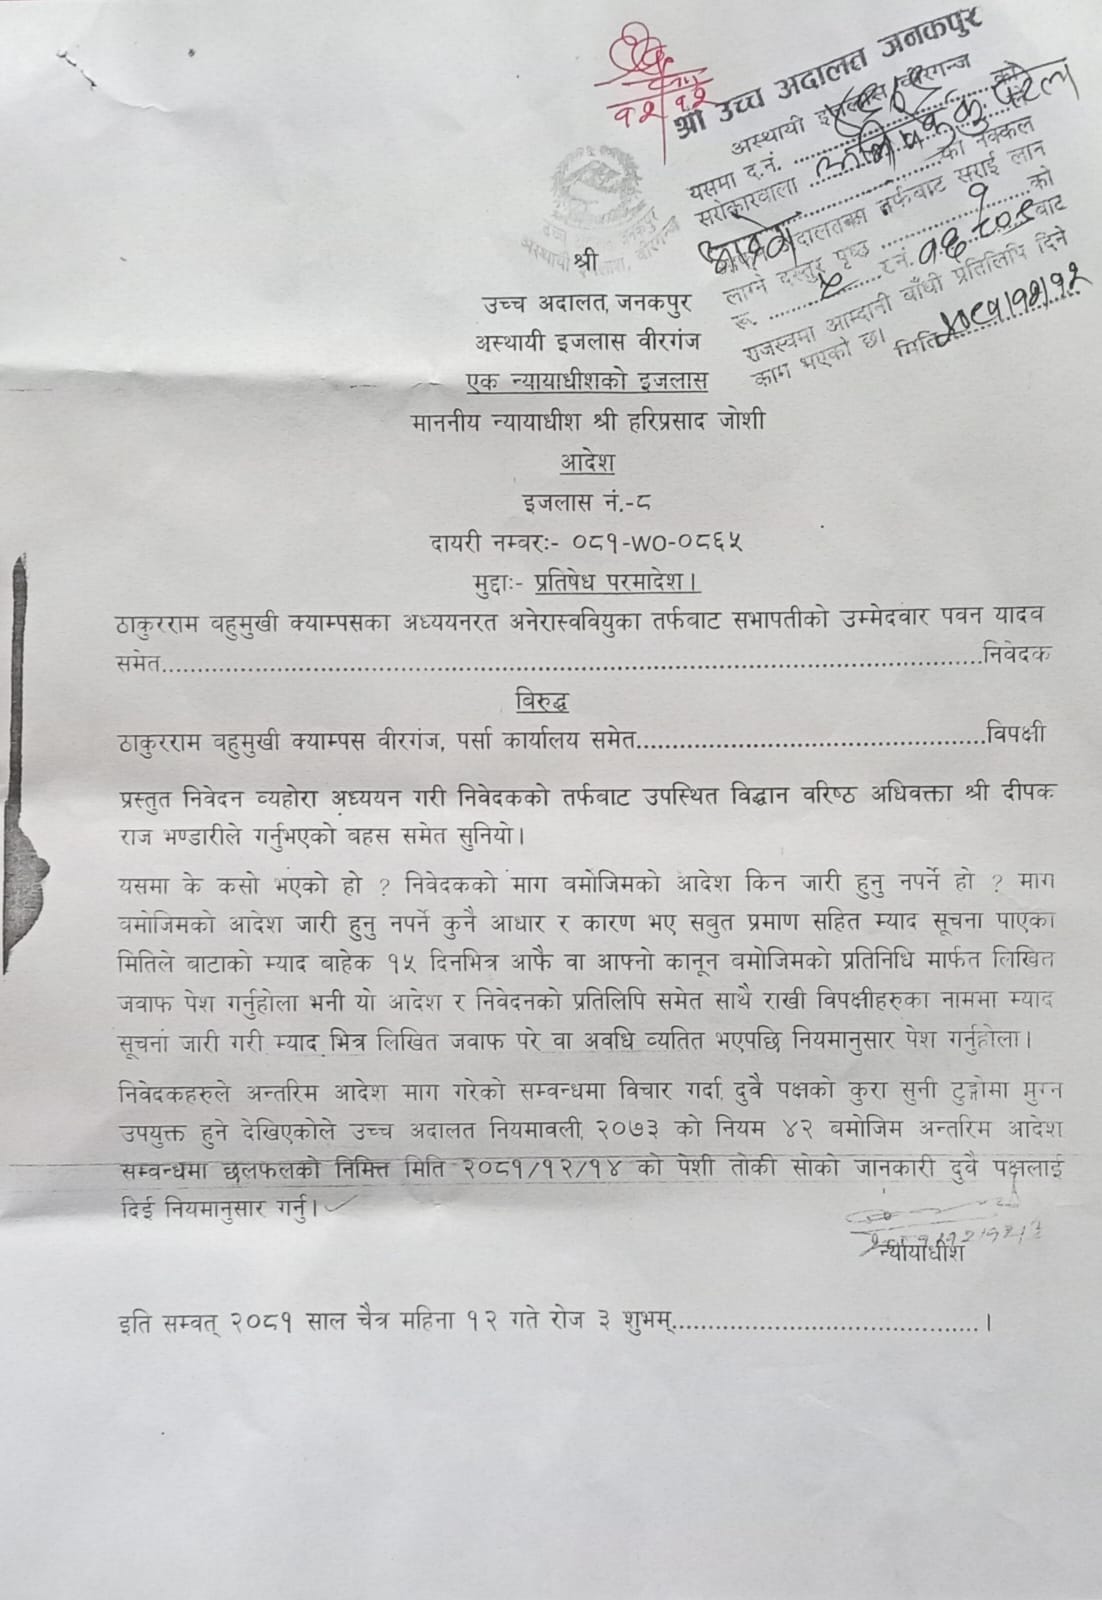 श्री उच्च अदालत जनकपुर
अस्थायी इजलास वीरगन्ज
यसमा द.नं. .................... को
सरोकारवाला ....................
को नक्कल
तर्फबाट सराई लान
लाग्ने दस्तुर पृष्ठ ............१............को
रु. ....५.... र.नं. १६८०९ बाट
राजस्वमा आम्दानी बाँधी प्रतिलिपि दिने
काम भएको छ। मिति २०८१।१२।१२
१२।१२
श्री
उच्च अदालत, जनकपुर
अस्थायी इजलास वीरगंज
एक न्यायाधीशको इजलास
माननीय न्यायाधीश श्री हरिप्रसाद जोशी
आदेश
इजलास नं.-८
दायरी नम्बरः- ०८१-WO-०८६५
मुद्दाः- प्रतिषेध परमादेश।
ठाकुरराम बहुमुखी क्याम्पसका अध्ययनरत अनेरास्ववियुका तर्फबाट सभापतीको उम्मेदवार पवन यादव
समेत....................................................................................................निवेदक
विरुद्ध
ठाकुरराम बहुमुखी क्याम्पस वीरगंज, पर्सा कार्यालय समेत..................................................विपक्षी
प्रस्तुत निवेदन व्यहोरा अध्ययन गरी निवेदकको तर्फबाट उपस्थित विद्धान वरिष्ठ अधिवक्ता श्री दीपक
राज भण्डारीले गर्नुभएको बहस समेत सुनियो।
यसमा के कसो भएको हो ? निवेदकको माग बमोजिमको आदेश किन जारी हुनु नपर्ने हो ? माग
बमोजिमको आदेश जारी हुनु नपर्ने कुनै आधार र कारण भए सबुत प्रमाण सहित म्याद सूचना पाएका
मितिले बाटाको म्याद बाहेक १५ दिनभित्र आफै वा आफ्नो कानून बमोजिमको प्रतिनिधि मार्फत लिखित
जवाफ पेश गर्नुहोला भनी यो आदेश र निवेदनको प्रतिलिपि समेत साथै राखी विपक्षीहरुका नाममा म्याद
सूचना जारी गरी म्याद भित्र लिखित जवाफ परे वा अवधि व्यतित भएपछि नियमानुसार पेश गर्नुहोला।
निवेदकहरुले अन्तरिम आदेश माग गरेको सम्बन्धमा विचार गर्दा, दुवै पक्षको कुरा सुनी टुङ्गोमा पुग्न
उपयुक्त हुने देखिएकोले उच्च अदालत नियमावली, २०७३ को नियम ४२ बमोजिम अन्तरिम आदेश
सम्बन्धमा छलफलको निमित्त मिति २०८१/१२/१४ को पेशी तोकी सोको जानकारी दुवै पक्षलाई
दिई नियमानुसार गर्नु।
न्यायाधीश
इति सम्वत् २०८१ साल चैत्र महिना १२ गते रोज ३ शुभम्............................................।